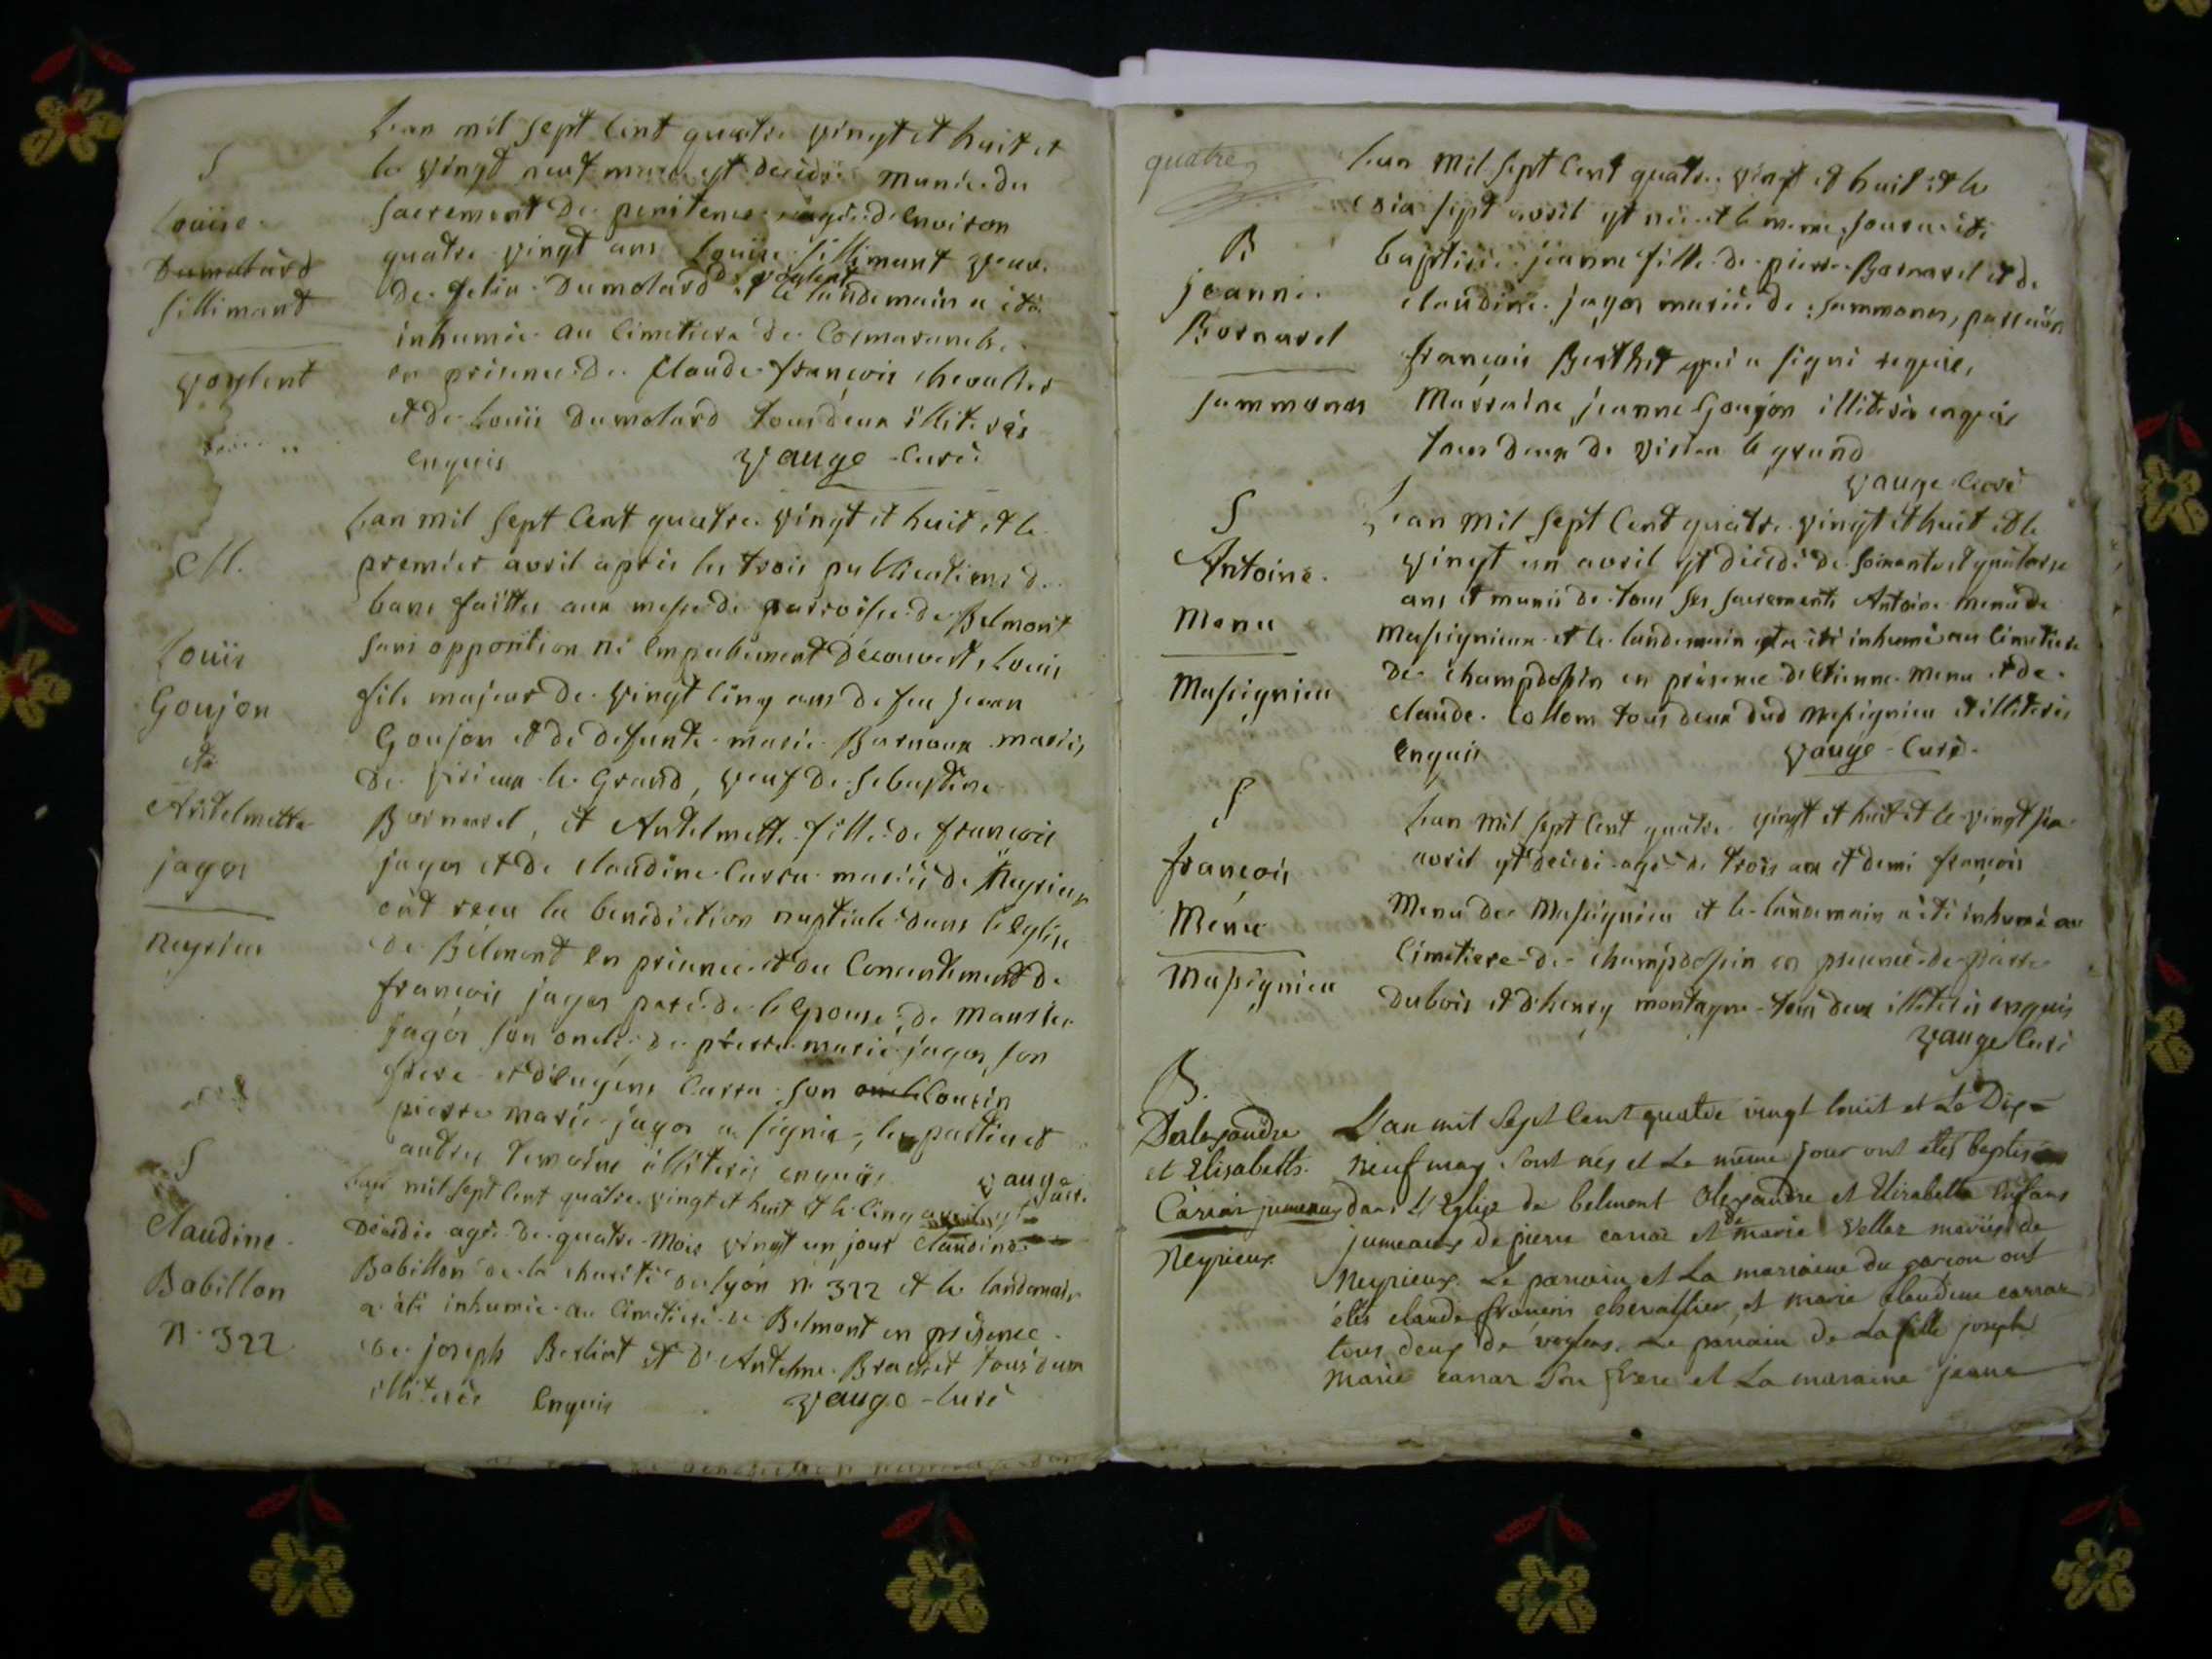 S
Louïse
Dumolard
fillimant
voylent
Lan mil sept Cent quatre vingt et huit et
le vingt neuf mars est decedée munie du
sacrement de penitence agée denviron
quatre vingt ans Louise fillimant veuve
de felix Dumolard de voylent et le landemain a été
inhumée au Cimetiere de Colmaranche
en présence de Claude françois chevalier
et de Louïs Dumolard tous deux illiterés
enquis vauge Curé
M.
Louïs
Goujon
et
Antelmette
jagos
Neyrieu
Lan mil sept Cent quatre vingt et huit et le
premier avril aprés les trois publications de
bans faittes aux messe de parroisse de Belmont
sans opposition ni Empechement découvert, Louis
fils majeur de vingt cinq ans de feu jean
Goujon et de defunte marie Barnoux mariés
de virieux le Grand, veuf de Sebastiene
Bornarel, et Antelmette fille de françois
jagos et de claudine Carra mariés de Neyrieux
ont reçu la benediction nuptiale dans leglise
de Belmont En présence et du Consentement de
françois jagos pere de lepouse, de
jagos son oncle, de pierre marie jagos son
frere et d'Eugene Carra son oncle Cousin
pierre marie jagos a signé, les parties et
autres temoins illiterés enquis vauge curé
S
Claudine
Babillon
N. 322
Lan mil sept Cent quatre vingt et huit et le cinq avril est
decedée agée de quatre mois vingt un jour Claudine
Babillon de la charité de lyon N. 322 et le landemain
a été inhumée au Cimetiere de Belmont en présence
de joseph Berliot et d'Antelme Brachet tous deux
illiterés Enquis vauge Curé
quatre
B
jeanne
Bornarel
sammonas
Lan mil sept Cent quatre vingt et huit et le
dix sept avril est née et le meme jour a été
baptisée jeanne fille de pierre Bornarel et de
claudine jagos mariés de sammonas, parrain
françois Berthet qui a signé requis,
Marraine jeanne Goujon illiterée enquis
tous deux de virieu le grand
vauge Curé
S
Antoine
Menu
Massignieu
Lan mil sept Cent quatre vingt et huit et le
vingt un avril est decedé de soixante et quatorze
ans et munis de tous ses sacrements Antoine menu de
Massignieux et le landemain a été inhumé au Cimetiere
de champdossin en présence detienne menu et de
claude Collom tous deux dud massignieu et illiterés
Enquis vauge Curé
S
françois
Menu
Massignieu
Lan mil sept Cent quatre vingt et huit et le vingt six
avril est decedé agé de trois ans et demi françois
Menu de Massignieu et le landemain a été inhumé au
Cimetiere de champdossin en présence de pierre
dubois et d'henry montagne tous deux illiterés enquis
vauge Curé
B.
D'alexandre
et Elisabeth
Carrar jumeaux
Neyrieux
L'an mil sept Cent quatre vingt huit et Le Dix
neuf may sont nés et Le même jour ont étés baptisés
dans L'Eglise de belmont Alexandre et Elisabette Enfans
jumeaux de pierre carrar et de marie Vellaz mariés de
Neyrieux. Le parrain et La marraine du garcon ont
étés claude francois chevallier et marie claudine carrar
tous deux de voylent. Le parrain de La fille joseph
marie carrar son frere et La marraine jeane